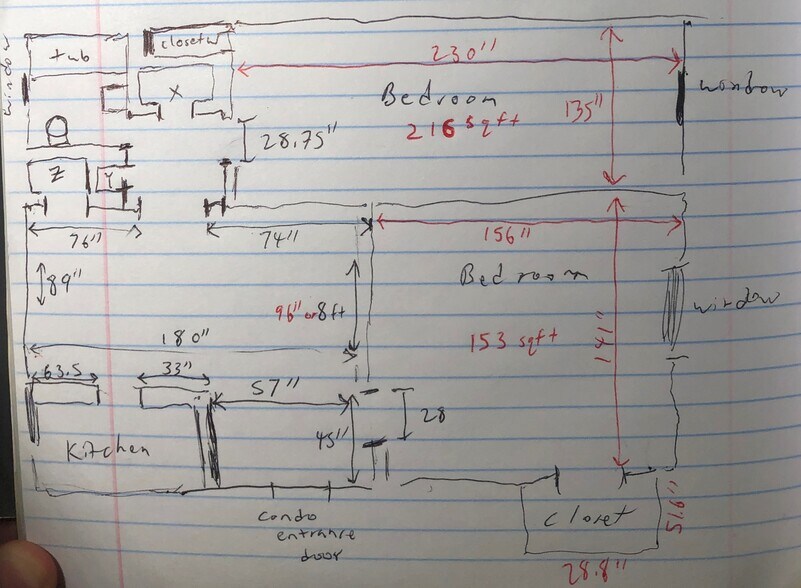 window
tub
closet w
x
230"
Bedroom
216 sqft
135"
window
28.75"
Z
Y
76"
74"
156"
89"
96" or 8ft
Bedroom
153 sqft
141"
window
180"
63.5
33"
57"
28
45"
Kitchen
condo
entrance
door
closet
51.6"
28.8"